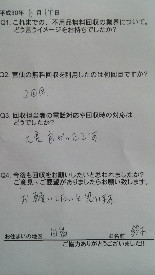 平成30年 月 1日
Q1.これまでの、不用品無料回収の業界について。
どう言うイメージをお持ちでしたか?
Q2.宮仙の無料回収を利用したのは何回目ですか?
2回目
Q3.回収担当者の電話対応や回収時の対応は
どうでしたか?
Q4.今後も回収をお願いしたいと思われましたか?
ご意見・ご要望がありましたらお願い致します。
お願いしたいと思います
お住まいの地区
お名前
ご協力ありがとうございました!!